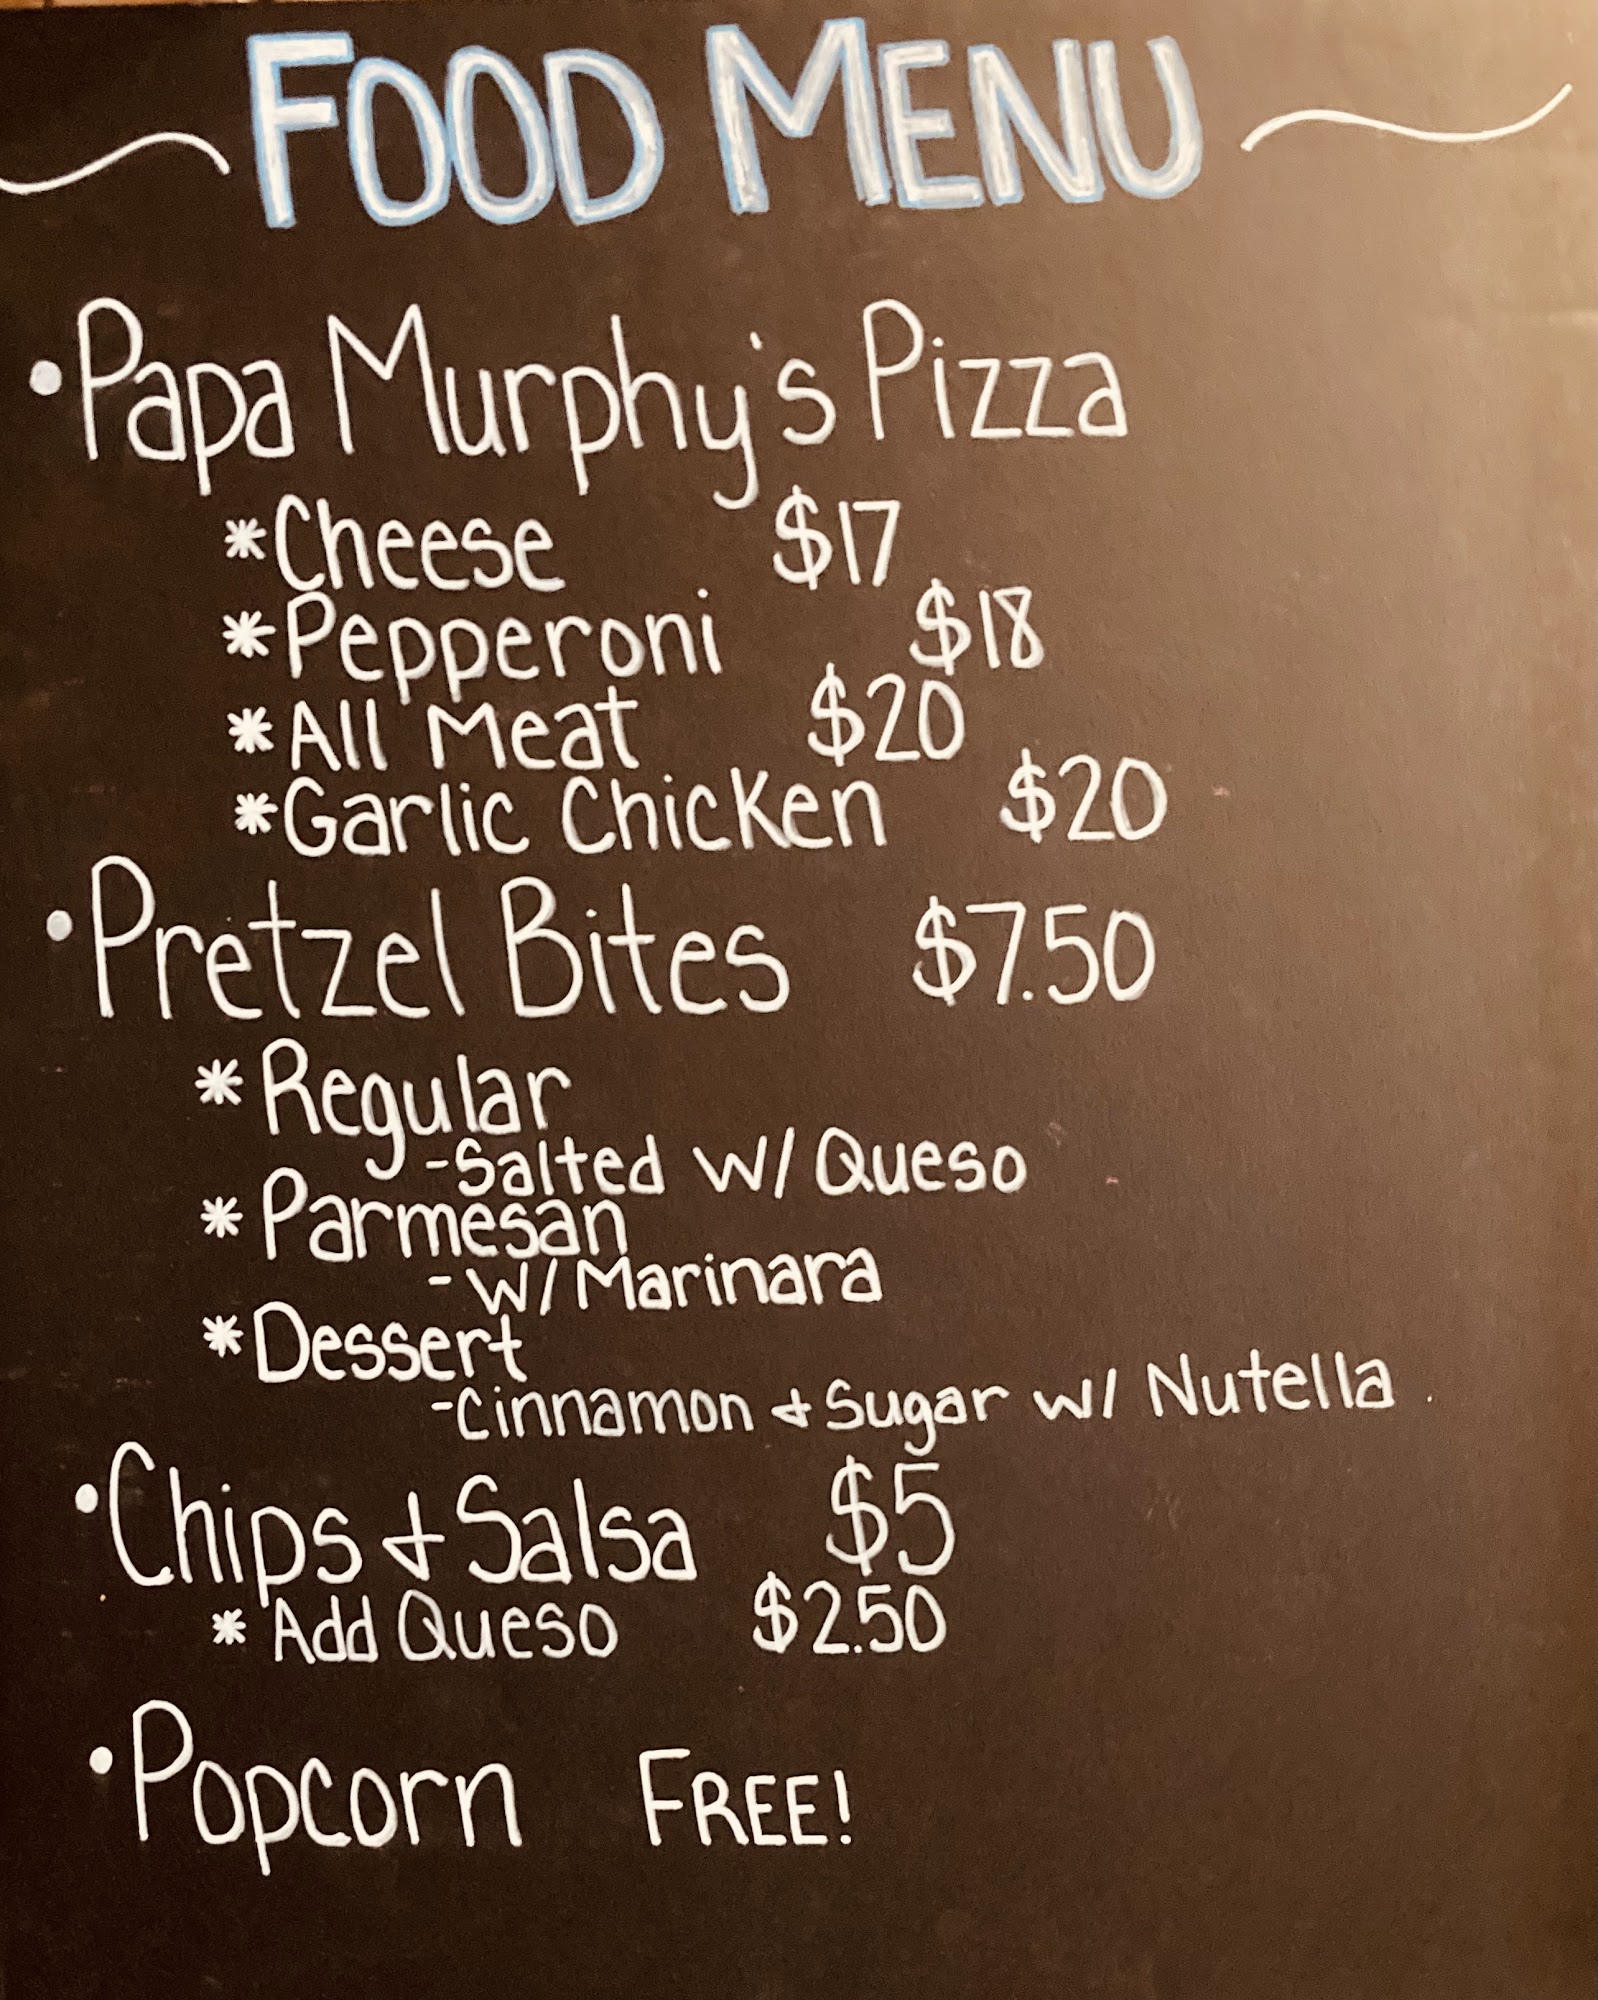 FOOD MENU
• Papa Murphy's Pizza
* Cheese $17
* Pepperoni $18
* All Meat $20
* Garlic Chicken $20
• Pretzel Bites $7.50
* Regular
- Salted w/ Queso
* Parmesan
- w/ Marinara
* Dessert
- Cinnamon & Sugar w/ Nutella
• Chips & Salsa $5
* Add Queso $2.50
• Popcorn FREE!